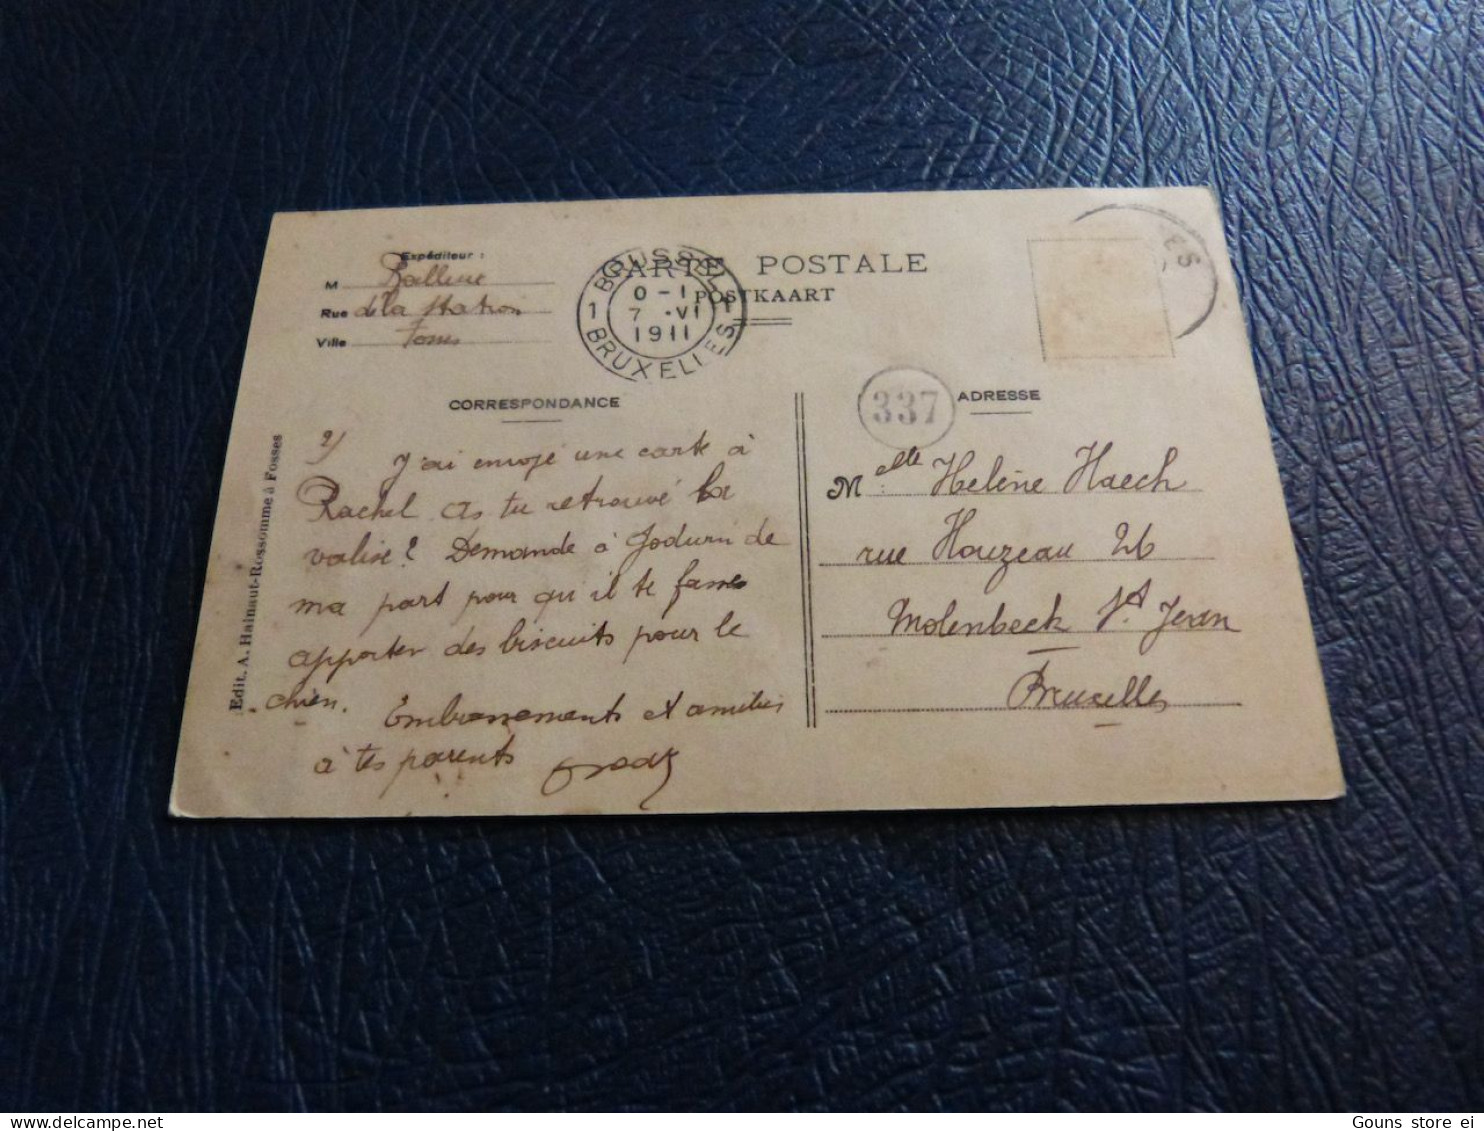 Expéditeur :
M
Rue de la Station
Ville Fosses
CARTE POSTALE
POSTKAART
BRUSSEL
1 1
0-1
7 .VI
1911
BRUXELLES
ES
CORRESPONDANCE
337
ADRESSE
2)
J'ai envoyé une carte à
Rachel. As tu retrouvé la
valise? Demande à Joduin de
ma part pour qu'il te fasses
apporter des biscuits pour le
chien.
Embrassements et amitiés
à tes parents
Melle Helène Haech
rue Houzeau 26
Molenbeek St. Jean
Bruxelles
Edit. A. Hainaut-Rossomme à Fosses
Gouns store ei